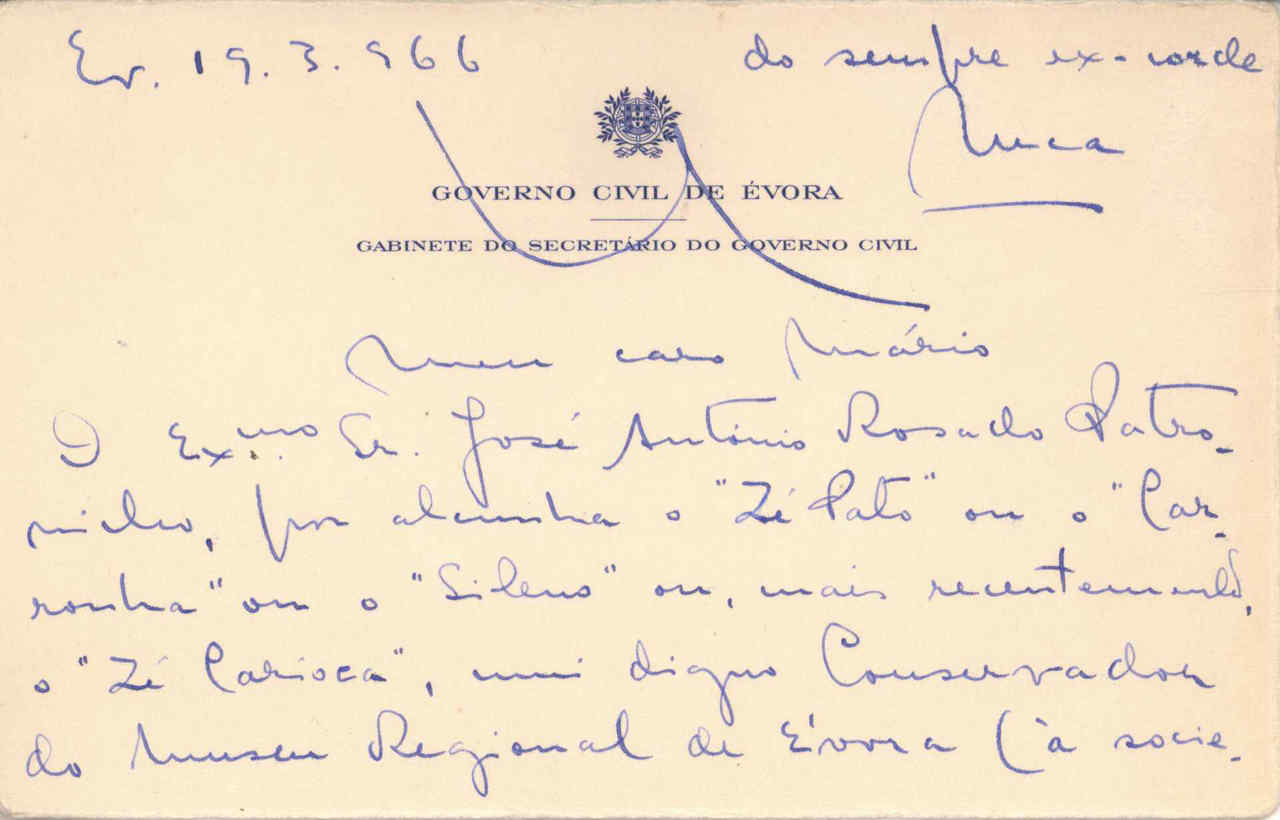 Ev. 19.3.966
do sempre ex-corde
Muca
GOVERNO CIVIL DE ÉVORA
GABINETE DO SECRETÁRIO DO GOVERNO CIVIL
Meu caro Mário
O Exmo. Sr. José António Rosado Patro-
nilho, por alcunha o "Zé Pato" ou o "Car-
ronha" ou o "Sileno" ou, mais recentemente,
o "Zé Carioca", mui digno Conservador
do Museu Regional de Évora (à socie-